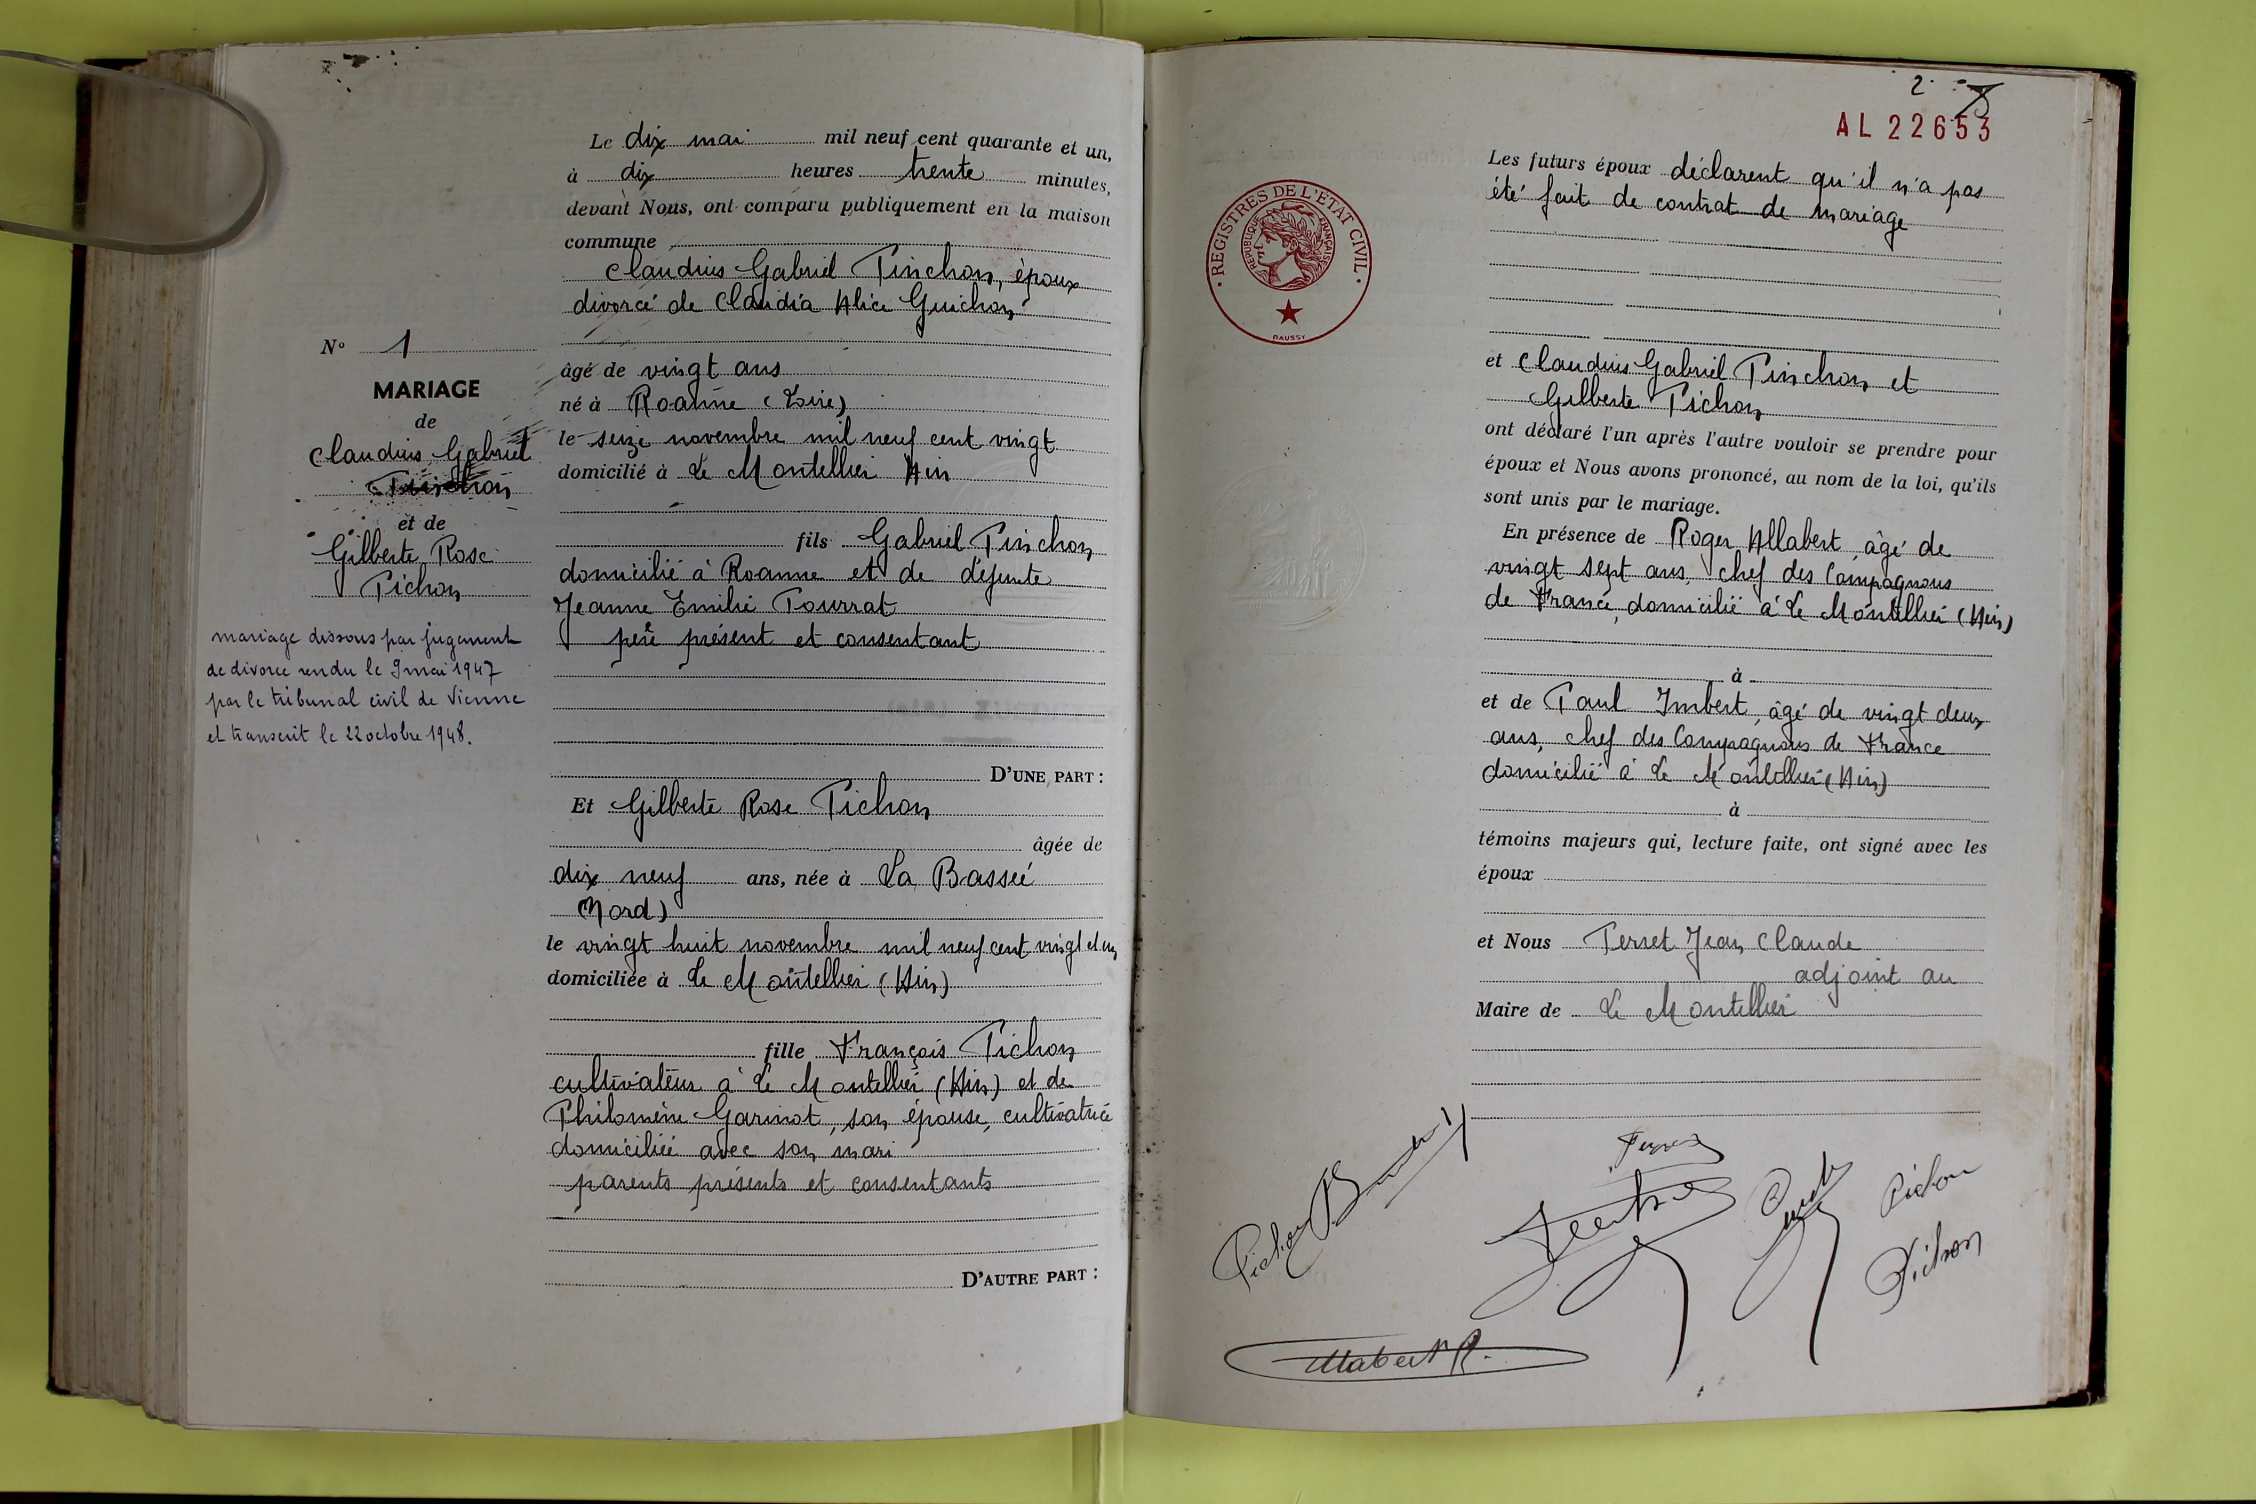 N° 1
MARIAGE
de
Claudius Gabriel
Pinchon
et de
Gilberte Rose
Pichon
mariage dissous par jugement
de divorce rendu le 9 mai 1947
par le tribunal civil de Vienne
et transcrit le 22 octobre 1948.
Le dix mai mil neuf cent quarante et un,
à dix heures trente minutes,
devant Nous, ont comparu publiquement en la maison
commune
Claudius Gabriel Pinchon, époux
divorcé de Claudia Alice Guichon
âgé de vingt ans
né à Roanne (Loire)
le seize novembre mil neuf cent vingt
domicilié à Le Montellier Ain
fils Gabriel Pinchon
domicilié à Roanne et de défunte
Jeanne Emilie Pourrat
père présent et consentant
D'UNE PART :
Et Gilberte Rose Pichon
âgée de
dix neuf ans, née à La Bassée
(Nord)
le vingt huit novembre mil neuf cent vingt et un
domiciliée à Le Montellier (Ain)
fille François Pichon
cultivateur à Le Montellier (Ain) et de
Philomène Garinot, son épouse, cultivatrice
domiciliée avec son mari
parents présents et consentants
D'AUTRE PART :
2
AL 22653
REGISTRES DE L'ÉTAT CIVIL
RÉPUBLIQUE FRANÇAISE
DAUSSY
Les futurs époux déclarent qu'il n'a pas
été fait de contrat de mariage
et Claudius Gabriel Pinchon et
Gilberte Pichon
ont déclaré l'un après l'autre vouloir se prendre pour
époux et Nous avons prononcé, au nom de la loi, qu'ils
sont unis par le mariage.
En présence de Roger Allabert, âgé de
vingt sept ans, chef des Compagnons
de France, domicilié à Le Montellier (Ain)
à
et de Paul Imbert, âgé de vingt deux
ans, chef des Compagnons de France
domicilié à Le Montellier (Ain)
à
témoins majeurs qui, lecture faite, ont signé avec les
époux
et Nous Perret Jean Claude
adjoint au
Maire de Le Montellier
Pichon
Pichon
Pichon
Allabert R.